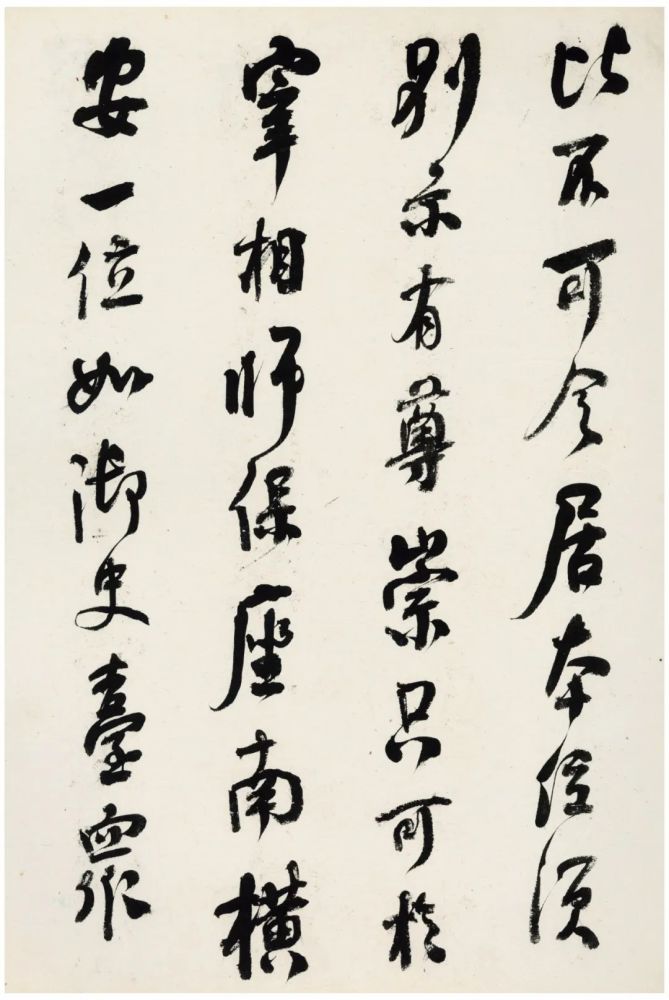 此不可令居本位須
別示有尊崇只可於
宰相師保座南橫
安一位如御史臺眾